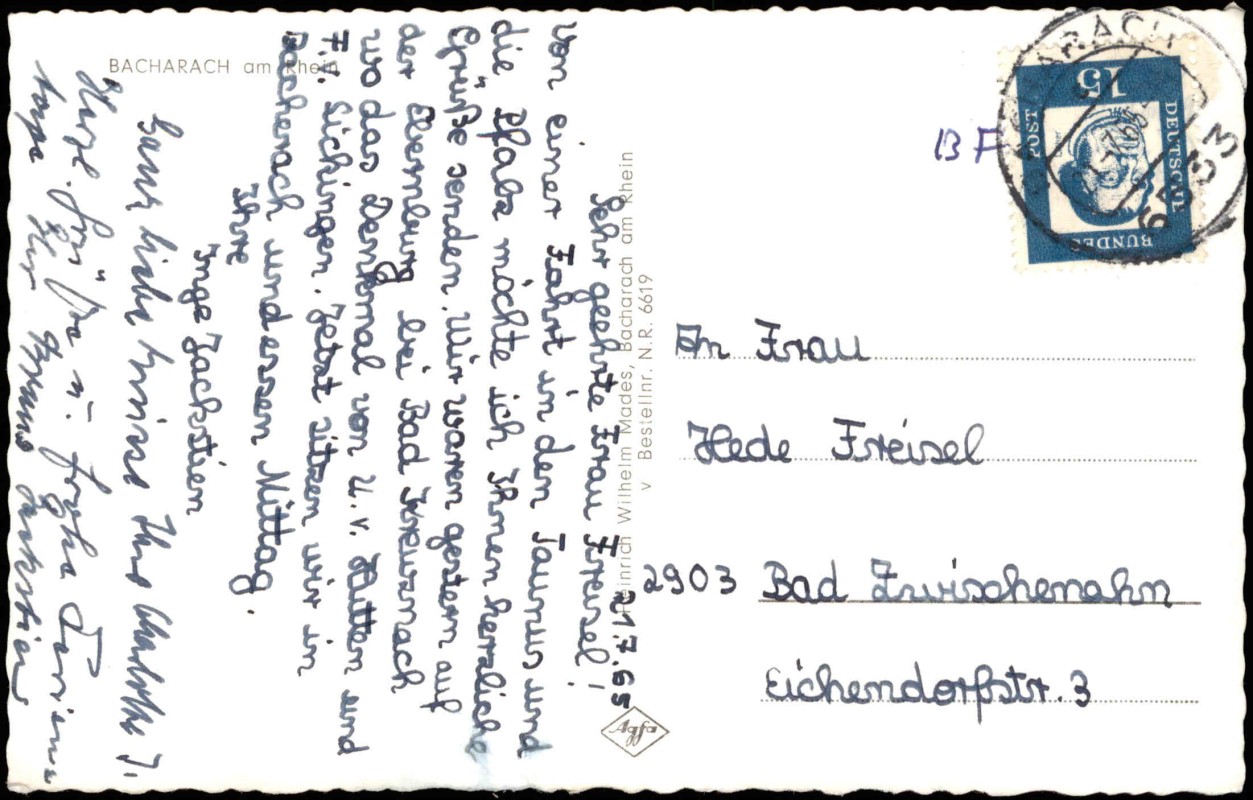 BACHARACH am Rhein
21.7.65
Sehr geehrte Frau Freisel!
Von einer Fahrt in den Taunus und
die Pfalz möchte ich Ihnen herzliche
Grüße senden. Wir waren gestern auf
der Ebernburg bei Bad Kreuznach
wo das Denkmal von U.v. Hutten und
F.v. Sickingen. Jetzt sitzen wir in
Bacherach und essen Mittag.
Ihre
Inge Jackstien
Ganz liebe Ihre J.
Herzl. Grüße u. frohe
Ihr Jackstien
Heinrich Wilhelm Mades, Bacharach am Rhein
v Bestellnr. N.R. 6619
Agfa
BF
15
DEUTSCHE
BUNDES
POST
BACHARACH
6533
An Frau
Hede Freisel
2903 Bad Zwischenahn
Eichendorfstr. 3